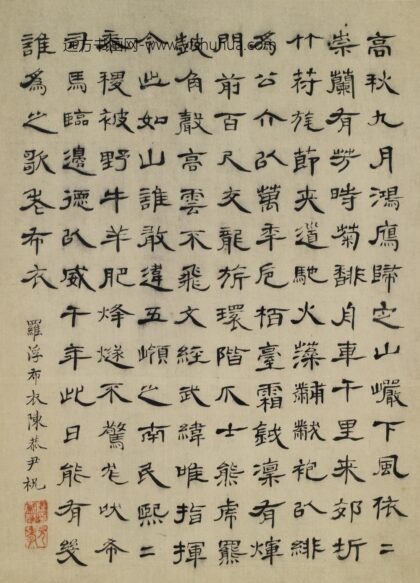 高秋九月鴻鴈歸之山巖下風依二
崇蘭有芳時菊月車千里來郊折
竹符旄節夾道馳火藻黼黻袍以緋
為公介以萬年卮栢臺霜鉞凜有煇
門前百尺交龍旂環階爪士熊虎羆
鼓角聲高雲不飛文經武緯唯指揮
令此如山誰敢違五嶺之南民熙二
黍稷被野牛羊肥烽燧不驚尨吠希
司馬臨邊德以威千年此日能有幾
誰為之歌老布衣
羅浮布衣陳恭尹祝